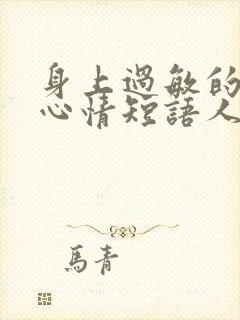 身上過敏的
心情短語人
馬青